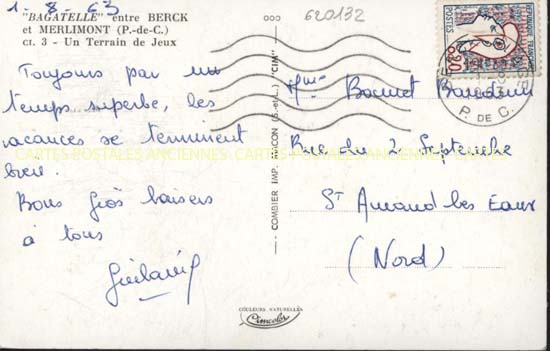 1-8-63
"BAGATELLE" entre BERCK
et MERLIMONT (P.-de-C.)
CI. 3 - Un Terrain de Jeux
Toujours par un
temps superbe, les
vacances se terminent
bien.
Bons gros baisers
à tous
COMBIER IMP. MACON (S.-et-L.) "CIM"
620132
POSTES
0,20
P. DE C.
Mme Bonnet Baudouin
Rue du 2 Septembre
St Amand les Eaux
(Nord)
CARTES POSTALES ANCIENNES
COULEURS NATURELLES
Cimcolor